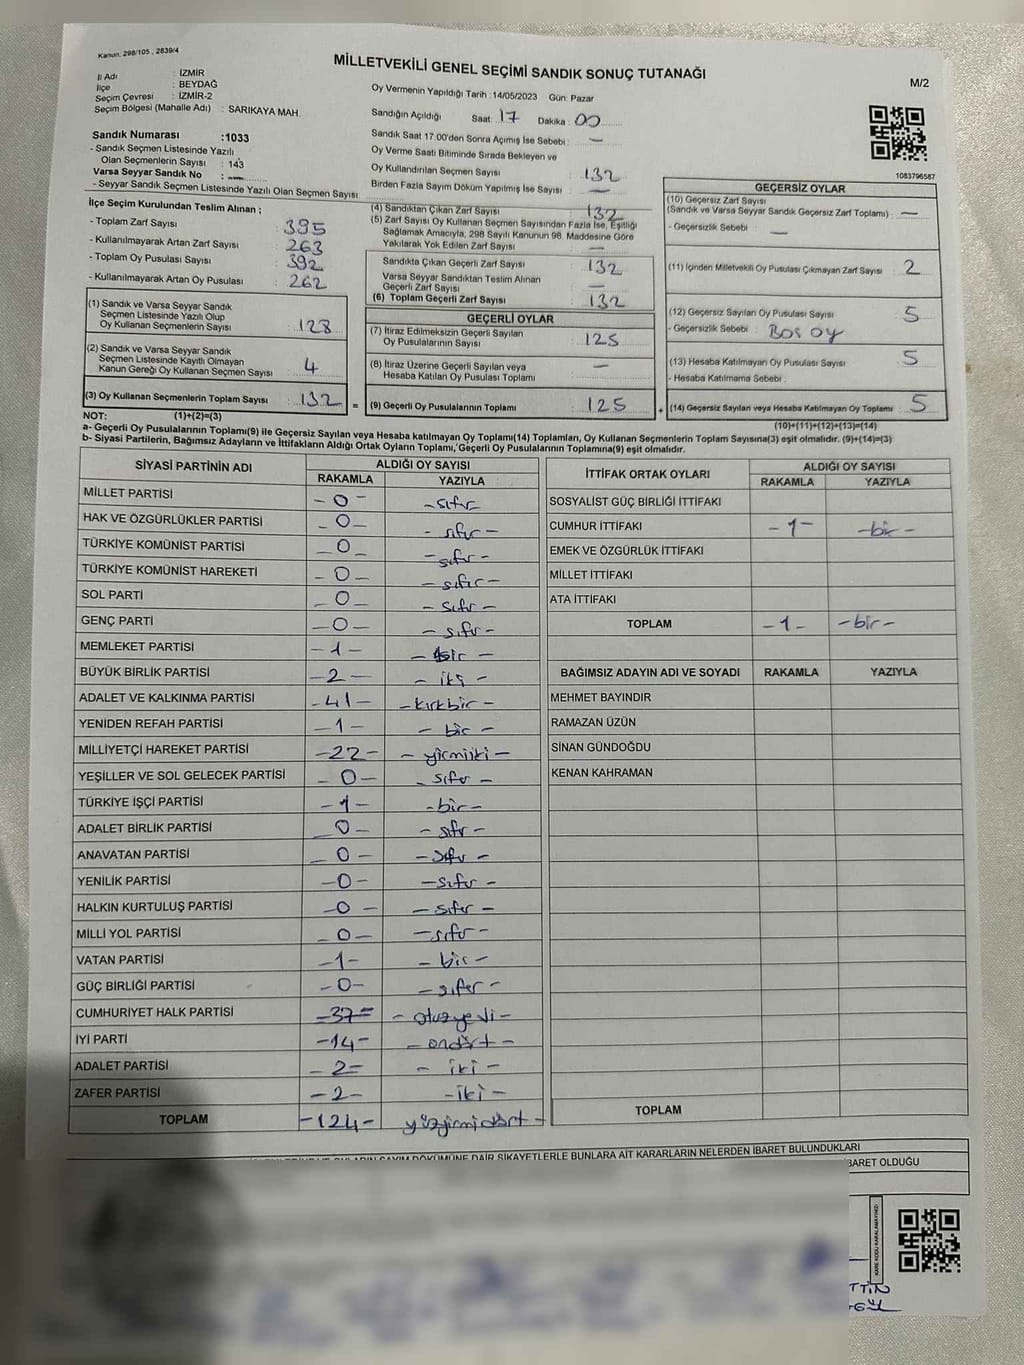 Kanun, 298/105 , 2839/4
MİLLETVEKİLİ GENEL SEÇİMİ SANDIK SONUÇ TUTANAĞI
M/2
İl Adı : İZMİR
İlçe : BEYDAĞ
Seçim Çevresi : İZMİR-2
Seçim Bölgesi (Mahalle Adı) : SARIKAYA MAH.
Sandık Numarası :1033
- Sandık Seçmen Listesinde Yazılı
Olan Seçmenlerin Sayısı : 143
Varsa Seyyar Sandık No : —
- Seyyar Sandık Seçmen Listesinde Yazılı Olan Seçmen Sayısı
Oy Vermenin Yapıldığı Tarih :14/05/2023 Gün: Pazar
Sandığın Açıldığı Saat: 17 Dakika : 00
Sandık Saat 17:00'den Sonra Açımış İse Sebebi : —
Oy Verme Saati Bitiminde Sırada Bekleyen ve
Oy Kullandırılan Seçmen Sayısı : 132
Birden Fazla Sayım Döküm Yapılmış İse Sayısı —
1083796587
İlçe Seçim Kurulundan Teslim Alınan ;
- Toplam Zarf Sayısı : 395
- Kullanılmayarak Artan Zarf Sayısı : 263
- Toplam Oy Pusulası Sayısı : 392
- Kullanılmayarak Artan Oy Pusulası : 262
(1) Sandık ve Varsa Seyyar Sandık
Seçmen Listesinde Yazılı Olup
Oy Kullanan Seçmenlerin Sayısı : 128
(2) Sandık ve Varsa Seyyar Sandık
Seçmen Listesinde Kayıtlı Olmayan
Kanun Gereği Oy Kullanan Seçmen Sayısı : 4
(3) Oy Kullanan Seçmenlerin Toplam Sayısı : 132 =
(4) Sandıktan Çıkan Zarf Sayısı : 132
(5) Zarf Sayısı Oy Kullanan Seçmen Sayısından Fazla İse, Eşitliği
Sağlamak Amacıyla, 298 Sayılı Kanunun 98. Maddesine Göre
Yakılarak Yok Edilen Zarf Sayısı : —
Sandıkta Çıkan Geçerli Zarf Sayısı : 132
Varsa Seyyar Sandıktan Teslim Alınan
Geçerli Zarf Sayısı : —
(6) Toplam Geçerli Zarf Sayısı : 132
GEÇERLİ OYLAR
(7) İtiraz Edilmeksizin Geçerli Sayılan
Oy Pusulalarının Sayısı : 125
(8) İtiraz Üzerine Geçerli Sayılan veya
Hesaba Katılan Oy Pusulası Toplamı : —
(9) Geçerli Oy Pusulalarının Toplamı : 125 +
GEÇERSİZ OYLAR
(10) Geçersiz Zarf Sayısı
(Sandık ve Varsa Seyyar Sandık Geçersiz Zarf Toplamı) : —
- Geçersizlik Sebebi : —
(11) İçinden Milletvekili Oy Pusulası Çıkmayan Zarf Sayısı : 2
(12) Geçersiz Sayılan Oy Pusulası Sayısı : 5
- Geçersizlik Sebebi : Boş oy
(13) Hesaba Katılmayan Oy Pusulası Sayısı : 5
- Hesaba Katılmama Sebebi :
(14) Geçersiz Sayılan veya Hesaba Katılmayan Oy Toplamı : 5
NOT: (1)+(2)=(3)
(10)+(11)+(12)+(13)=(14)
a- Geçerli Oy Pusulalarının Toplamı(9) ile Geçersiz Sayılan veya Hesaba katılmayan Oy Toplamı(14) Toplamları, Oy Kullanan Seçmenlerin Toplam Sayısına(3) eşit olmalıdır. (9)+(14)=(3)
b- Siyasi Partilerin, Bağımsız Adayların ve İttifakların Aldığı Ortak Oyların Toplamı, Geçerli Oy Pusulalarının Toplamına(9) eşit olmalıdır.
SİYASİ PARTİNİN ADI ALDIĞI OY SAYISI
RAKAMLA YAZIYLA
MİLLET PARTİSİ -0- -sıfır
HAK VE ÖZGÜRLÜKLER PARTİSİ -0- -sıfır-
TÜRKİYE KOMÜNİST PARTİSİ -0- -sıfır-
TÜRKİYE KOMÜNİST HAREKETİ -0- -sıfır-
SOL PARTİ -0- -sıfır-
GENÇ PARTİ -0- -sıfır-
MEMLEKET PARTİSİ -1- -bir-
BÜYÜK BİRLİK PARTİSİ -2- -iki-
ADALET VE KALKINMA PARTİSİ -41- -kırkbir-
YENİDEN REFAH PARTİSİ -1- -bir-
MİLLİYETÇİ HAREKET PARTİSİ -22- -yirmiiki-
YEŞİLLER VE SOL GELECEK PARTİSİ -0- -sıfır-
TÜRKİYE İŞÇİ PARTİSİ -1- -bir-
ADALET BİRLİK PARTİSİ -0- -sıfır-
ANAVATAN PARTİSİ -0- -sıfır-
YENİLİK PARTİSİ -0- -sıfır-
HALKIN KURTULUŞ PARTİSİ -0- -sıfır-
MİLLİ YOL PARTİSİ -0- -sıfır-
VATAN PARTİSİ -1- -bir-
GÜÇ BİRLİĞİ PARTİSİ -0- -sıfır-
CUMHURİYET HALK PARTİSİ -37- -otuzyedi-
İYİ PARTİ -14- -ondört-
ADALET PARTİSİ -2- -iki-
ZAFER PARTİSİ -2- -iki-
TOPLAM -124- yüzyirmidört-
İTTİFAK ORTAK OYLARI ALDIĞI OY SAYISI
RAKAMLA YAZIYLA
SOSYALİST GÜÇ BİRLİĞİ İTTİFAKI
CUMHUR İTTİFAKI -1- -bir-
EMEK VE ÖZGÜRLÜK İTTİFAKI
MİLLET İTTİFAKI
ATA İTTİFAKI
TOPLAM -1- -bir-
BAĞIMSIZ ADAYIN ADI VE SOYADI RAKAMLA YAZIYLA
MEHMET BAYINDIR
RAMAZAN ÜZÜN
SİNAN GÜNDOĞDU
KENAN KAHRAMAN
TOPLAM
SAYIM DÖKÜMÜNE DAİR ŞİKAYETLERLE BUNLARA AİT KARARLARIN NELERDEN İBARET BULUNDUKLARI
BARET OLDUĞU
KARE KODU KARALAMAYINIZ!
TTİN